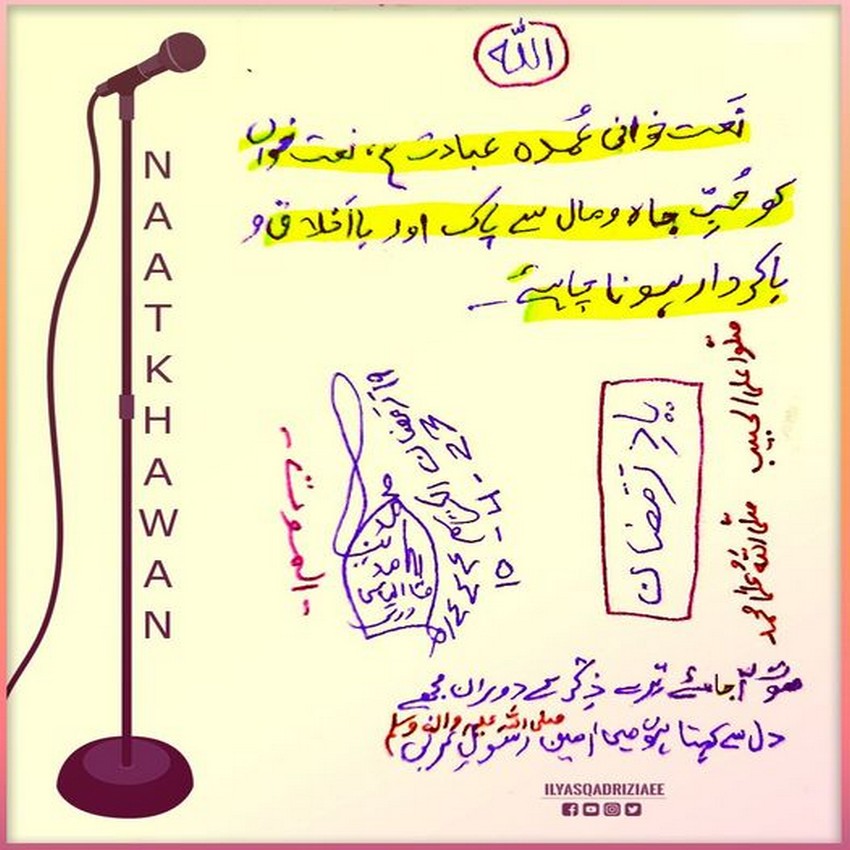 الله
نَعت خوانی عُمدہ عبادت ہے، نعت خواں
کو حُبِّ جاہ و مال سے پاک اور با اَخلاق و
باکردار ہونا چاہئے۔
صلّوا علی الحبیب
صلّی اللہُ علٰی محمد
یادِ رَمَضان
الموت
موت آ جائے تِرے ذِکْر کے دوران مجھے
دل سے کہتا ہوں میں امین رسولِ عربی
صلی اللہ علیہ والہ وسلم
NAATKHAWAN
ILYASQADRIZIAEE